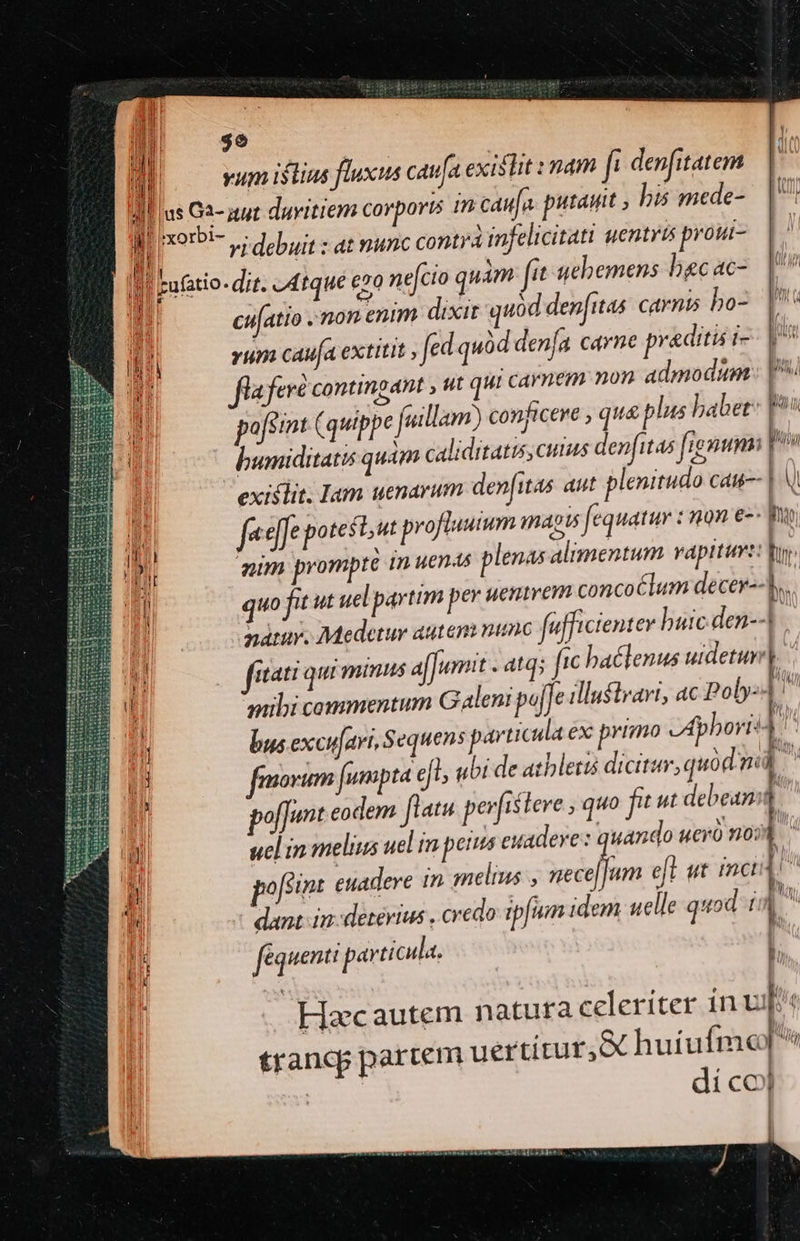 50
rum istius fluxus causa existit : nam si densitatem
aut duritiem corporis in causa putauit , his mede-
us Ga-
xorbi-
ri debuit : at nunc contrà infelicitati uentris proui-
cusatio. dit. Atque ego nescio quàm sit uehemens hęc ac-
cusatio . non enim dixit quòd densitas carnis ho-
rum causa extitit , sed quòd densa carne præditis i-
sta ferè contingant , ut qui carnem non admodùm
possint (quippe suillam) conficere , quæ plus habet
humiditatis quàm caliditatis, cuius densitas signum
existit. Iam uenarum densitas aut plenitudo cau-
sa esse potest, ut profluuium magis sequatur : non e-
nim promptè in uenas plenas alimentum rapitur:
quo fit ut uel partim per uentrem concoctum decer-
natur. Medetur autem nunc sufficienter huic den-
sitati qui minus assumit . atq; sic hactenus uidetur
mihi commentum Galeni posse illustrari, ac Poly-
bus excusari, Sequens particula ex primo Aphori-
smorum sumpta est, ubi de athletis dicitur, quòd
possunt eodem statu persistere , quo fit ut debean
uel in melius uel in peius euadere : quando uerò no
possint euadere in melius , necessum est ut inci
dant in deterius . credo ipsum idem uelle quod
sequenti particula.
Hæc autem natura celeriter in
tranq; partem uertitur, & huiusm
di co